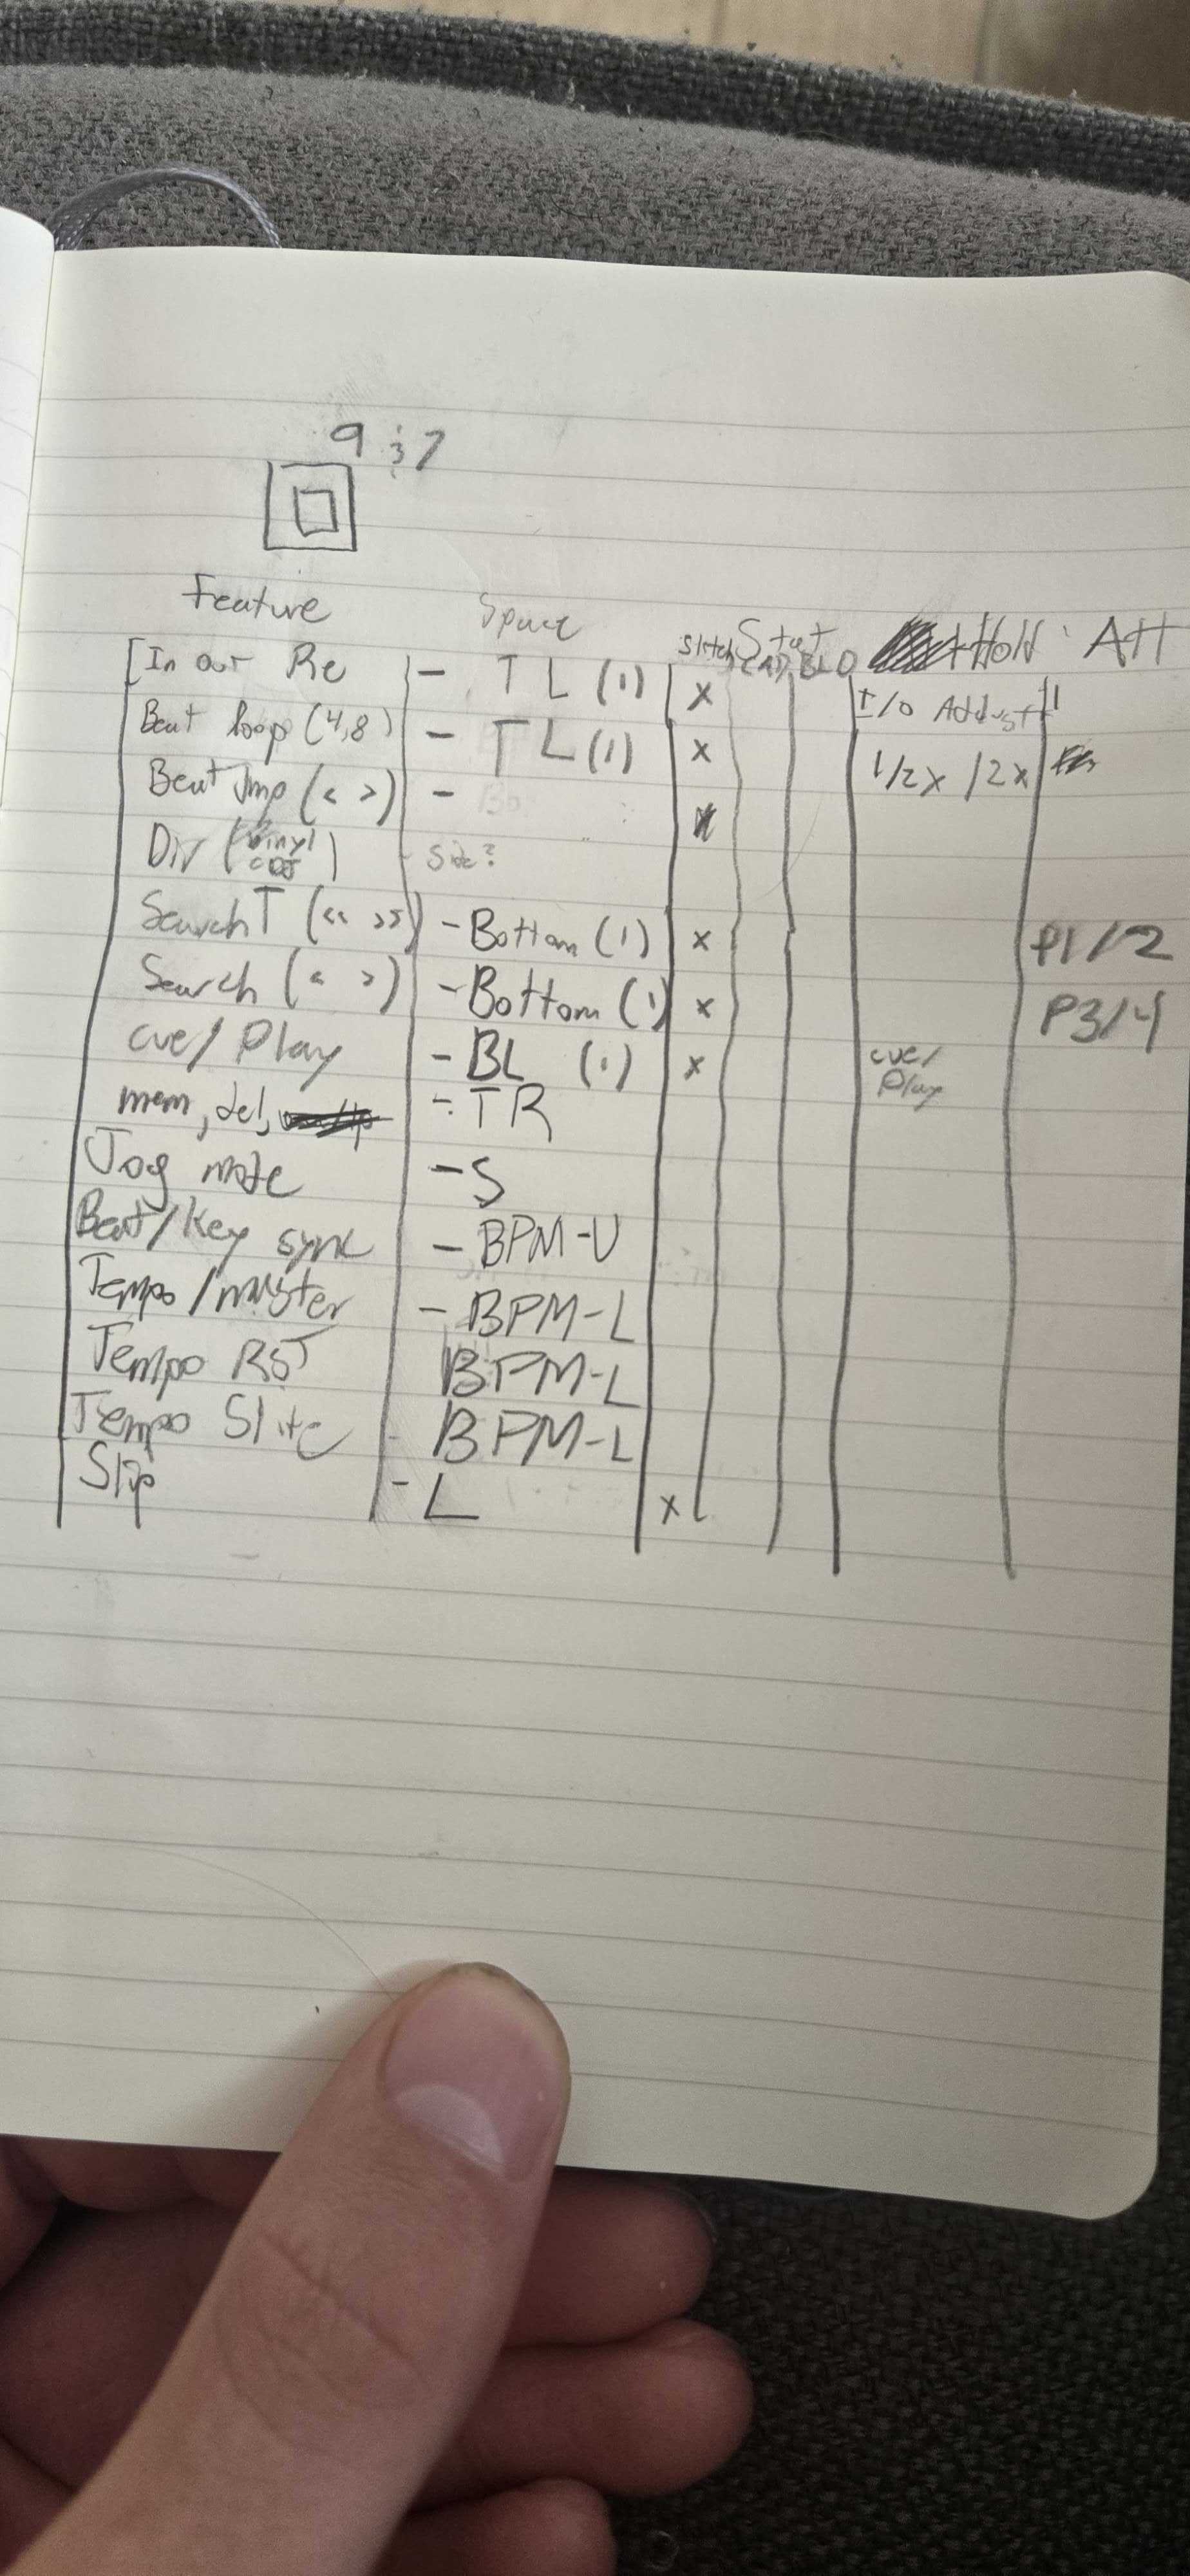 9 : 7
Feature Space Stat Hold Alt
[In out Re - TL (1) x I/O Adjust
Beat loop (4,8) - TL (1) x 1/2x /2x
Beat Jmp (< >) -
Dir (Vinyl CDJ) - Side?
Search T (<< >>) - Bottom (1) x P1/2
Search (< >) - Bottom (1) x P3/4
cue/Play - BL (1) x cue/Play
mem, del, - TR
Jog mode - S
Beat/Key sync - BPM-U
Tempo/master - BPM-L
Tempo RST BPM-L
Tempo Slide - BPM-L
Slip - L x